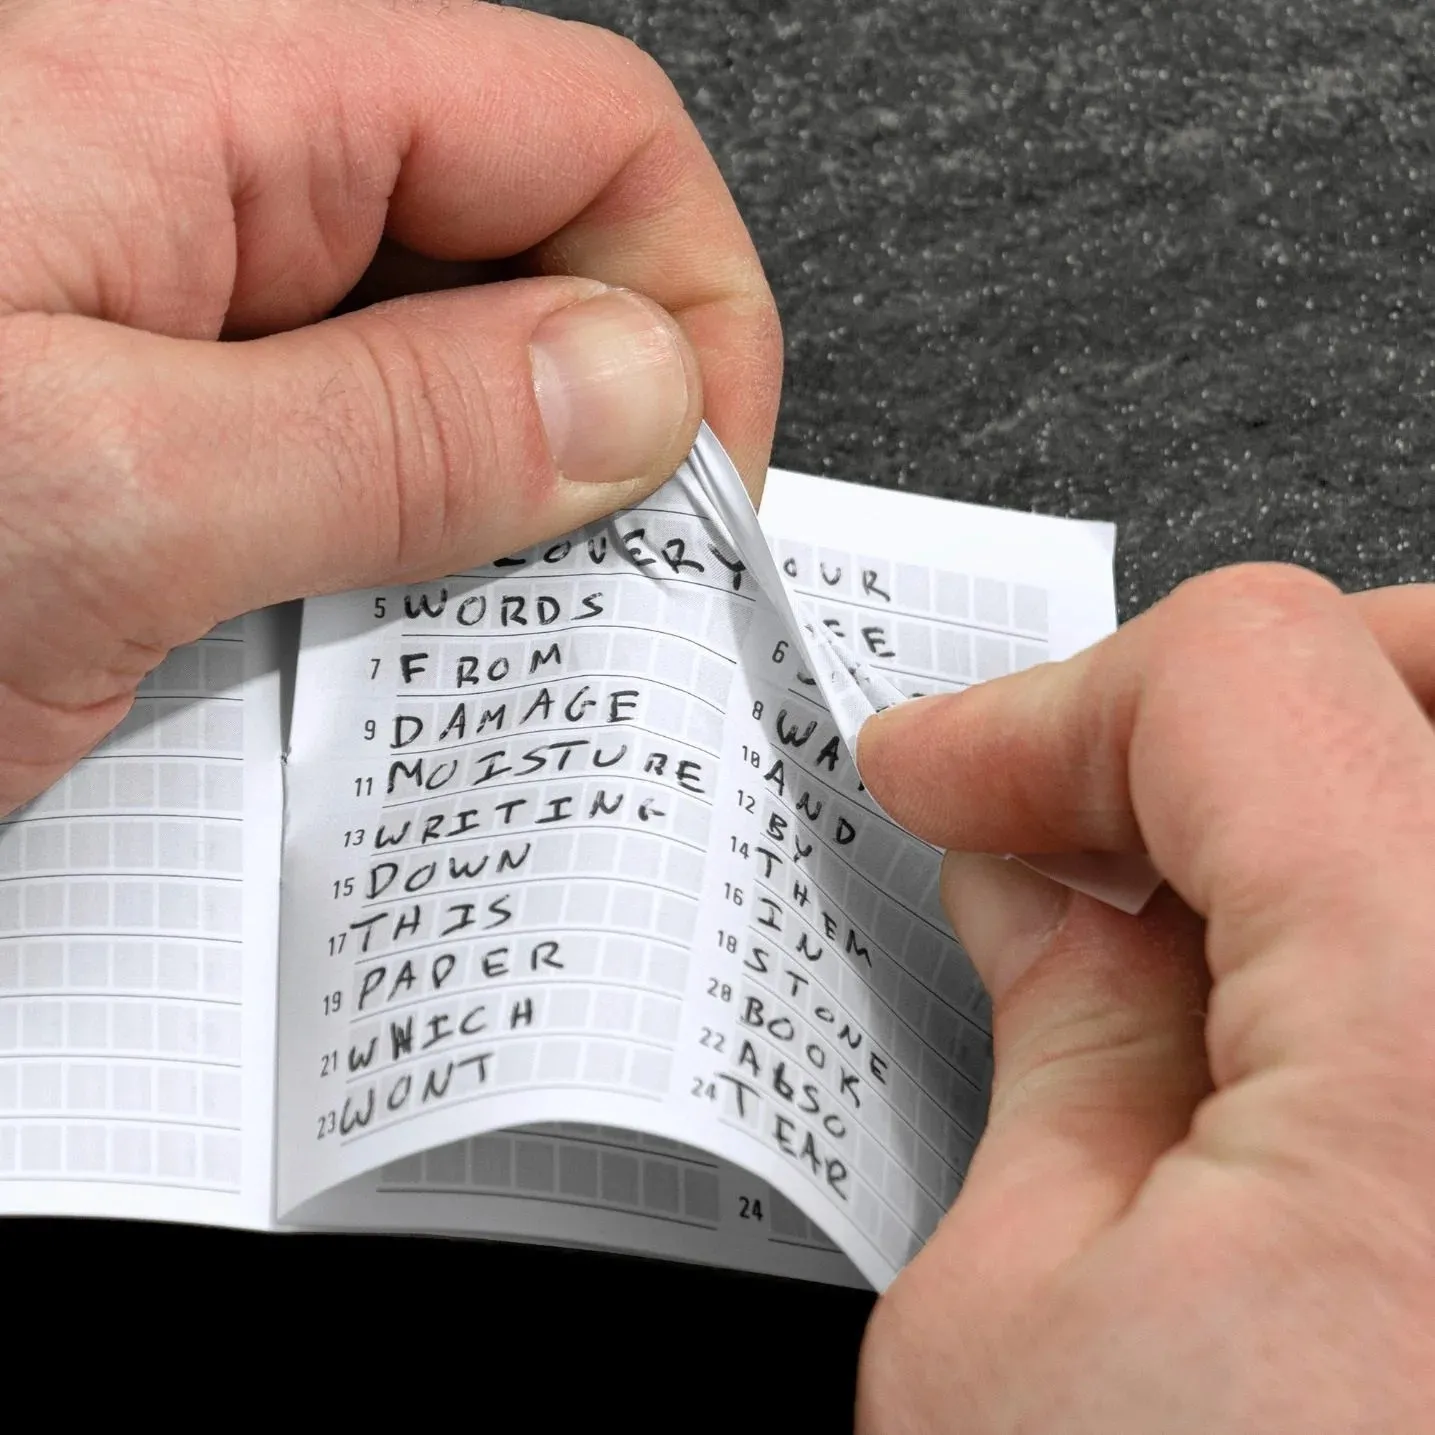 5 WORDS
6
7 FROM
8
9 DAMAGE
10 AND
11 MOISTURE
12 BY
13 WRITING
14 THEM
15 DOWN
16 IN
17 THIS
18 STONE
19 PAPER
20 BOOK
21 WHICH
22 AbSO
23 WONT
24 TEAR
24